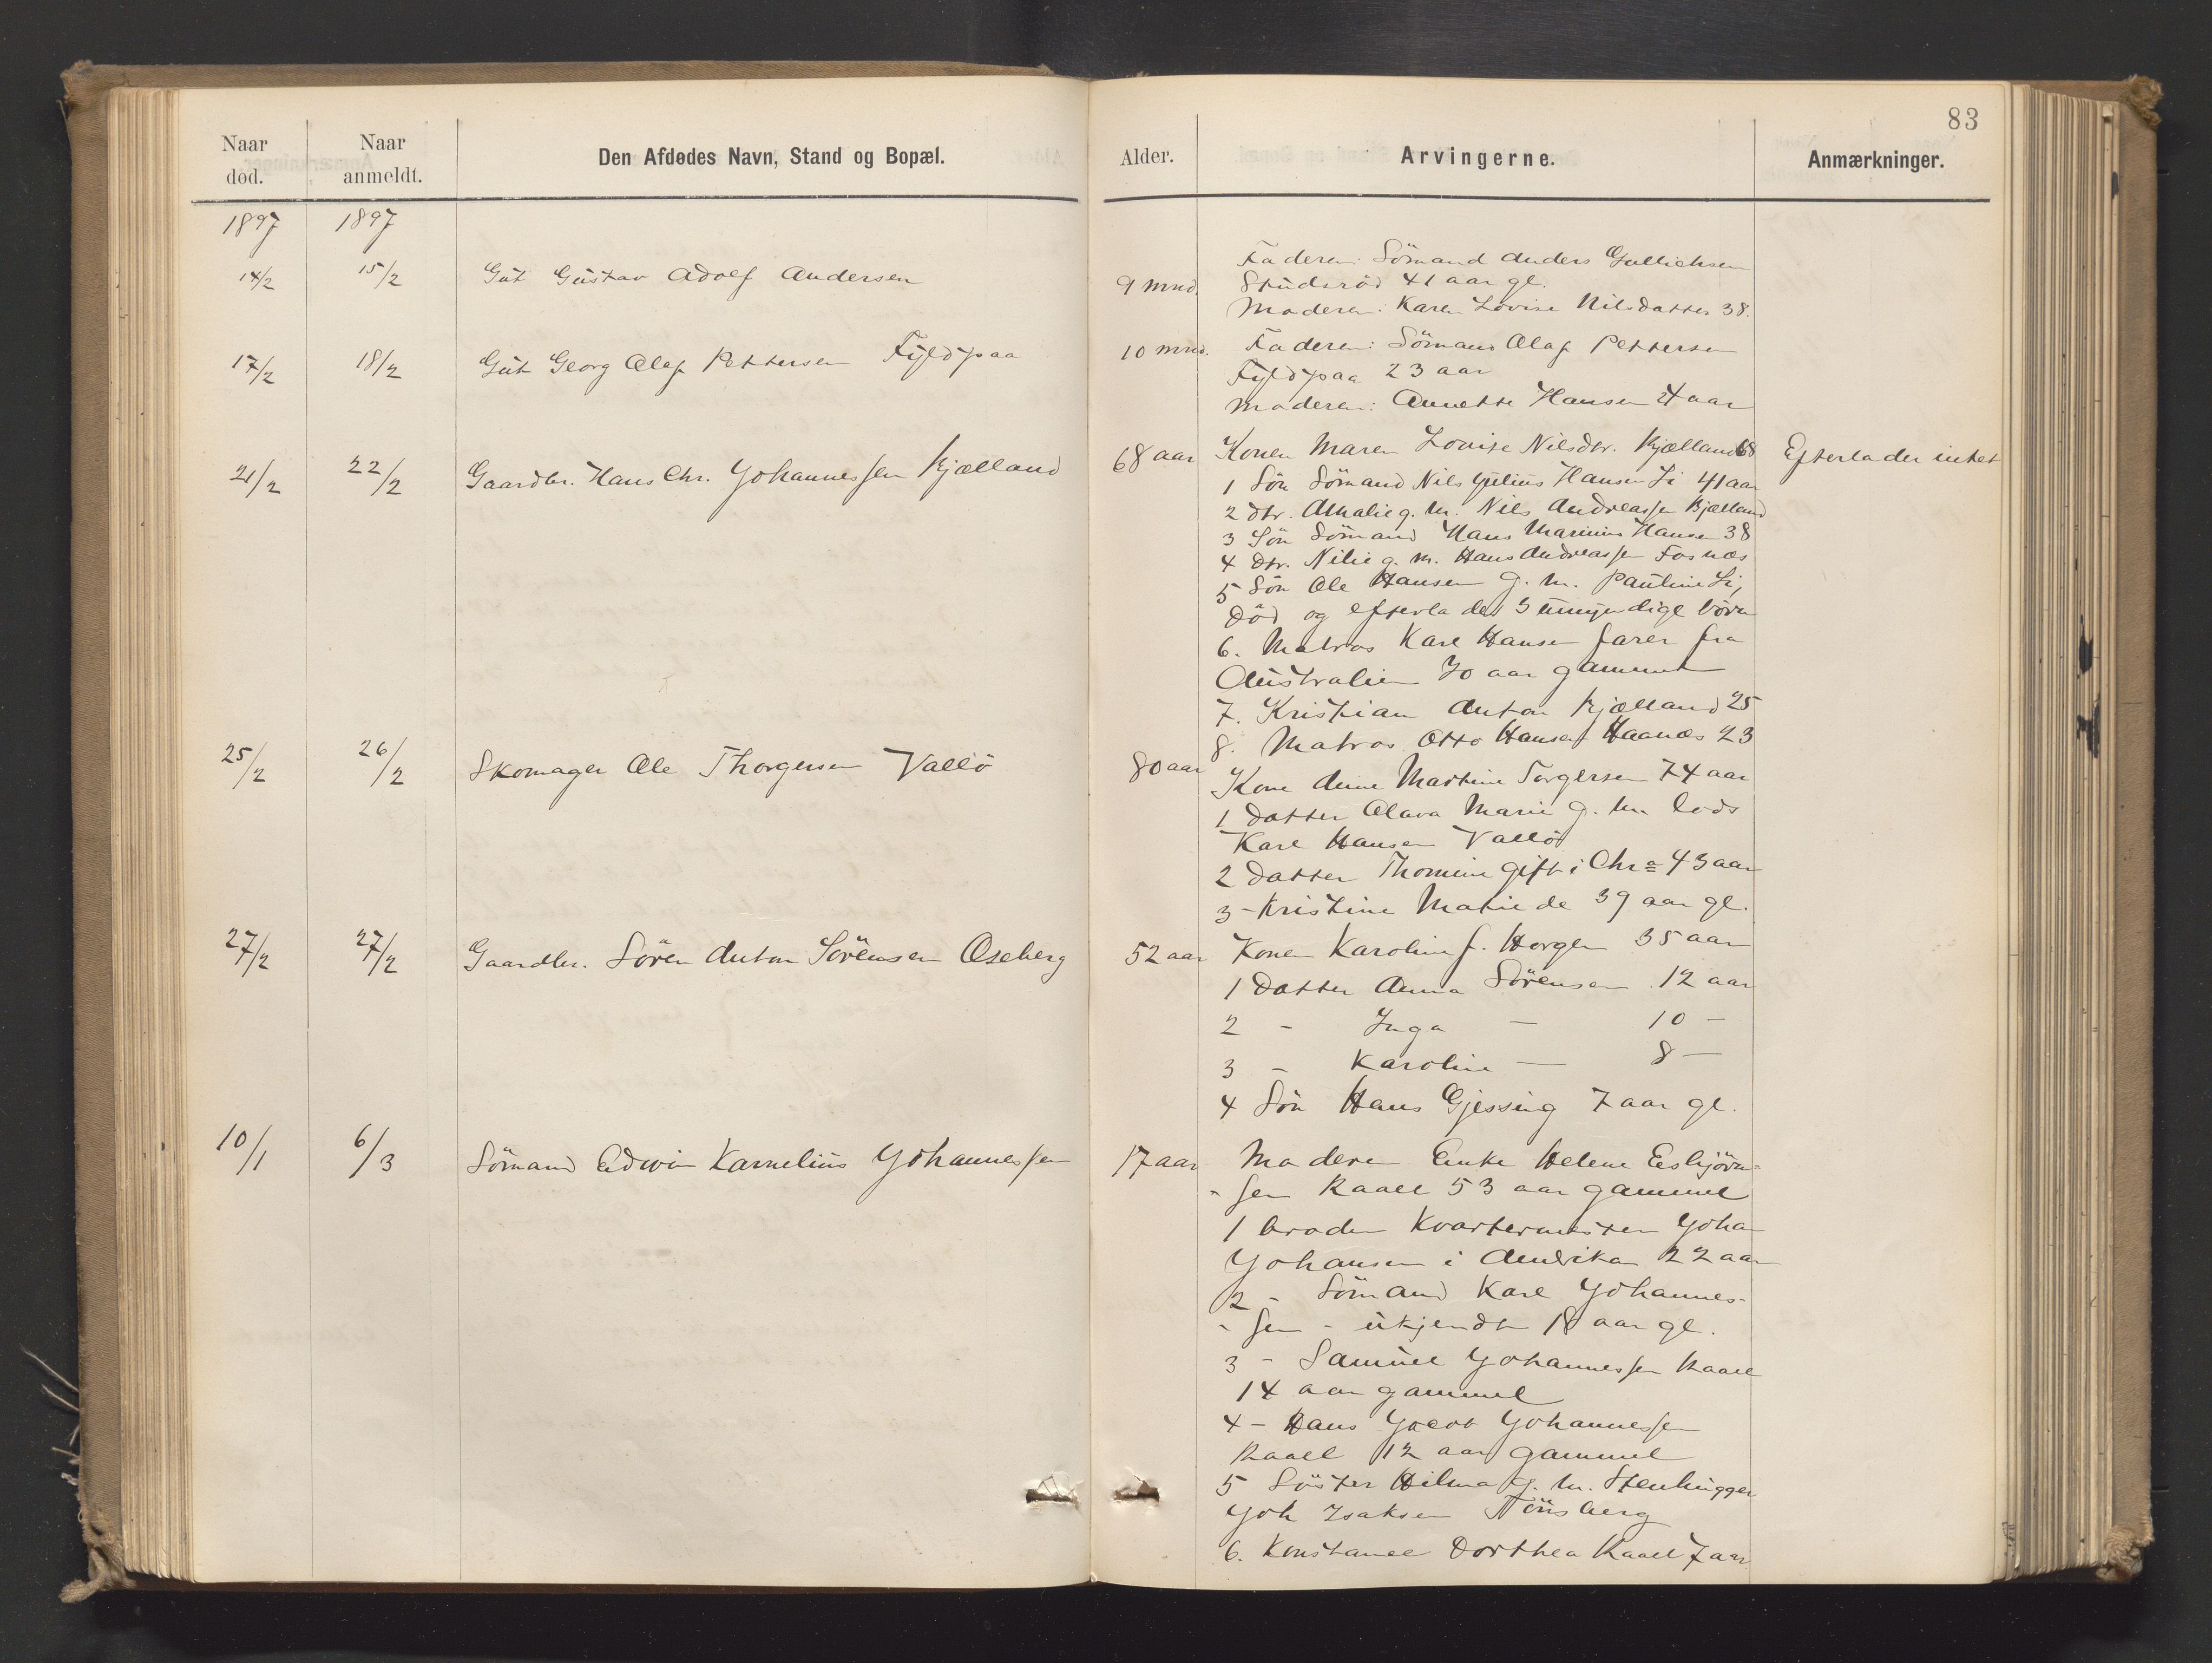 83
Naar død.
Naar anmeldt.
Den Afdødes Navn, Stand og Bopæl.
Alder.
Arvingerne.
Anmærkninger.
1897 1897
14/2 15/2 Gut Gustav Adolf Andersen 9 mnd.
Faderen: Sömand Anders Gullichsen
Studsröd 41 aar gl.
Moderen: Karen Lovise Nilsdatter 38.
17/2 18/2 Gut Georg Olaf Pettersen Fyldpaa 10 mnd.
Faderen: Sömand Olaf Pettersen
Fyldpaa 23 aar
Moderen: Annette Hansen 4 aar
21/2 22/2 Gaardbr. Hans Chr. Johannessen Kjælland 68 aar
Konen Maren Lovise Nilsdtr. Kjælland 68
Efterlader intet
1 Sön Sömand Nils Julius Hansen Li 41 aar
2 dtr. Amalie g. m. Nils Andreassen Kjælland
3 Sön Sömand Hans Marinius Hansen 38
4 dtr. Nilie g. m. Hans Andreassen Fosnæs
5 Sön Ole Hansen g. m. Pauline Li,
död og efterlader 3 umyndige börn
6. Matros Karl Hansen farer fra
Australien 30 aar gammel
7. Kristian Anton Kjælland 25
8. Matros Otto Hansen Haanæs 23
25/2 26/2 Skomager Ole Thorgersen Vallö 80 aar
Kone Anne Martine Torgersen 74 aar
1 Datter Olava Marie g. m. lods
Karl Hansen Vallö
2 Datter Thomine gift i Chra 43 aar
3 - Kristine Matiede 39 aar gl.
27/2 27/2 Gaardbr. Sören Anton Sörensen Oseberg 52 aar
Konen Karoline f. Horgen 35 aar
1 Datter Anna Sörensen 12 aar
2 - Inga — 10 —
3 - Karoline — 8 —
4 Sön Hans Gjessing 7 aar gl.
10/1 6/3 Sömand Edwin Karnelius Johannessen 17 aar
Moderen Enke Helene Esbjörn-
-sen Raael 53 aar gammel
1 broder Kvartermester Johan
Johansen i Amerika 22 aar
2 - Sömand Karl Johannes-
-sen - ukjendt 18 aar gl.
3 - Samuel Johannessen Raael
14 aar gammel
4 - Hans Jacob Johannessen
Raael 12 aar gammel
5 Söster Hilma g. m. Stenhugger
Joh Isaksen Tönsberg
6. Konstance Dorthea Raael 7 aar